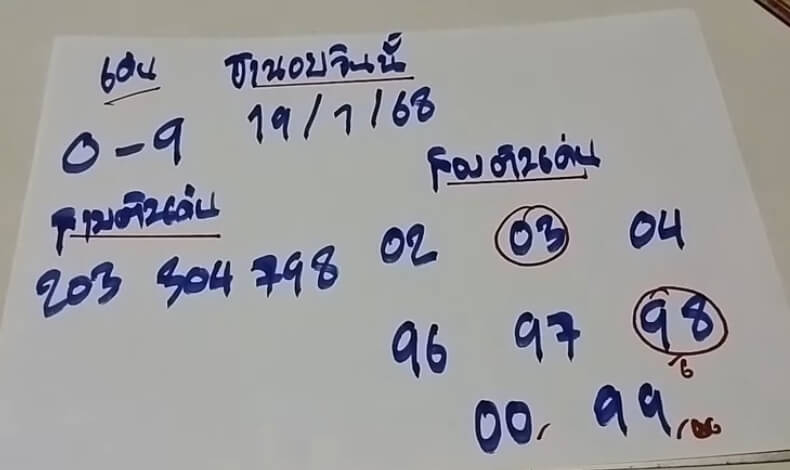 เด่น ฮานอยวันนี้
0-9 19/1/68
สองตัวเด่น
สามตัวเด่น
02 03 04
203 304 798
96 97 98
6
00, 99,